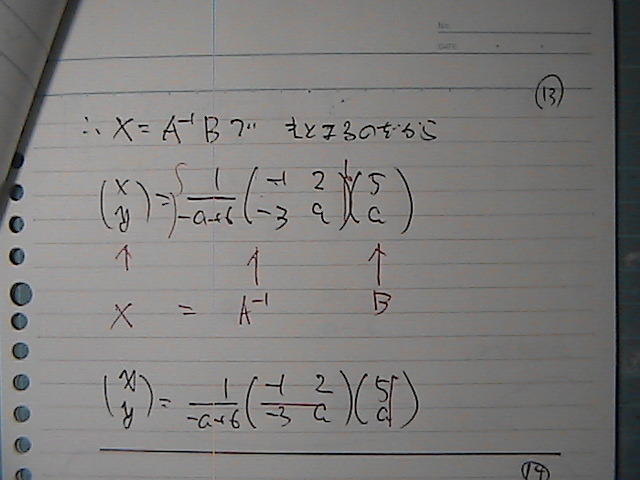 No.
DATE
⑬
∴ X = A⁻¹B で もとまるから
(x y) = 1/(-a+6) (-1 2 -3 a)(5 a)
↑ ↑ ↑
X = A⁻¹ B
(x y) = 1/(-a+6) (-1 2 -3 a)(5 a)
⑭